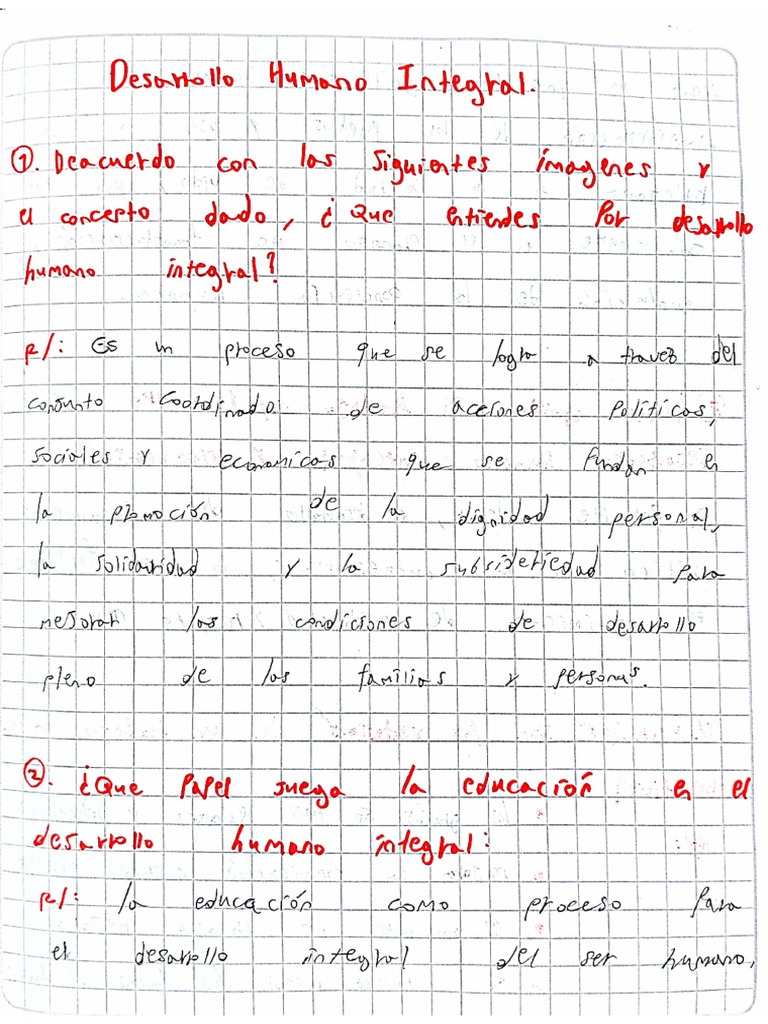 Desarrollo Humano Integral.
①. Deacuerdo con las siguientes imagenes y
el concepto dado, ¿Que entiendes por desarrollo
humano integral?
R/: Es un proceso que se logra a travez del
conjunto coordinado de aceiones políticas,
sociales y economicas que se fundan en
la promoción de la dignidad personal,
la solidaridad y la subsideriedad para
mejorar las condiciones de desarrollo
pleno de las familias y personas.
②. ¿Que papel juega la educación en el
desarrollo humano integral:
R/: la educación como proceso para
el desarrollo integral del ser humano,